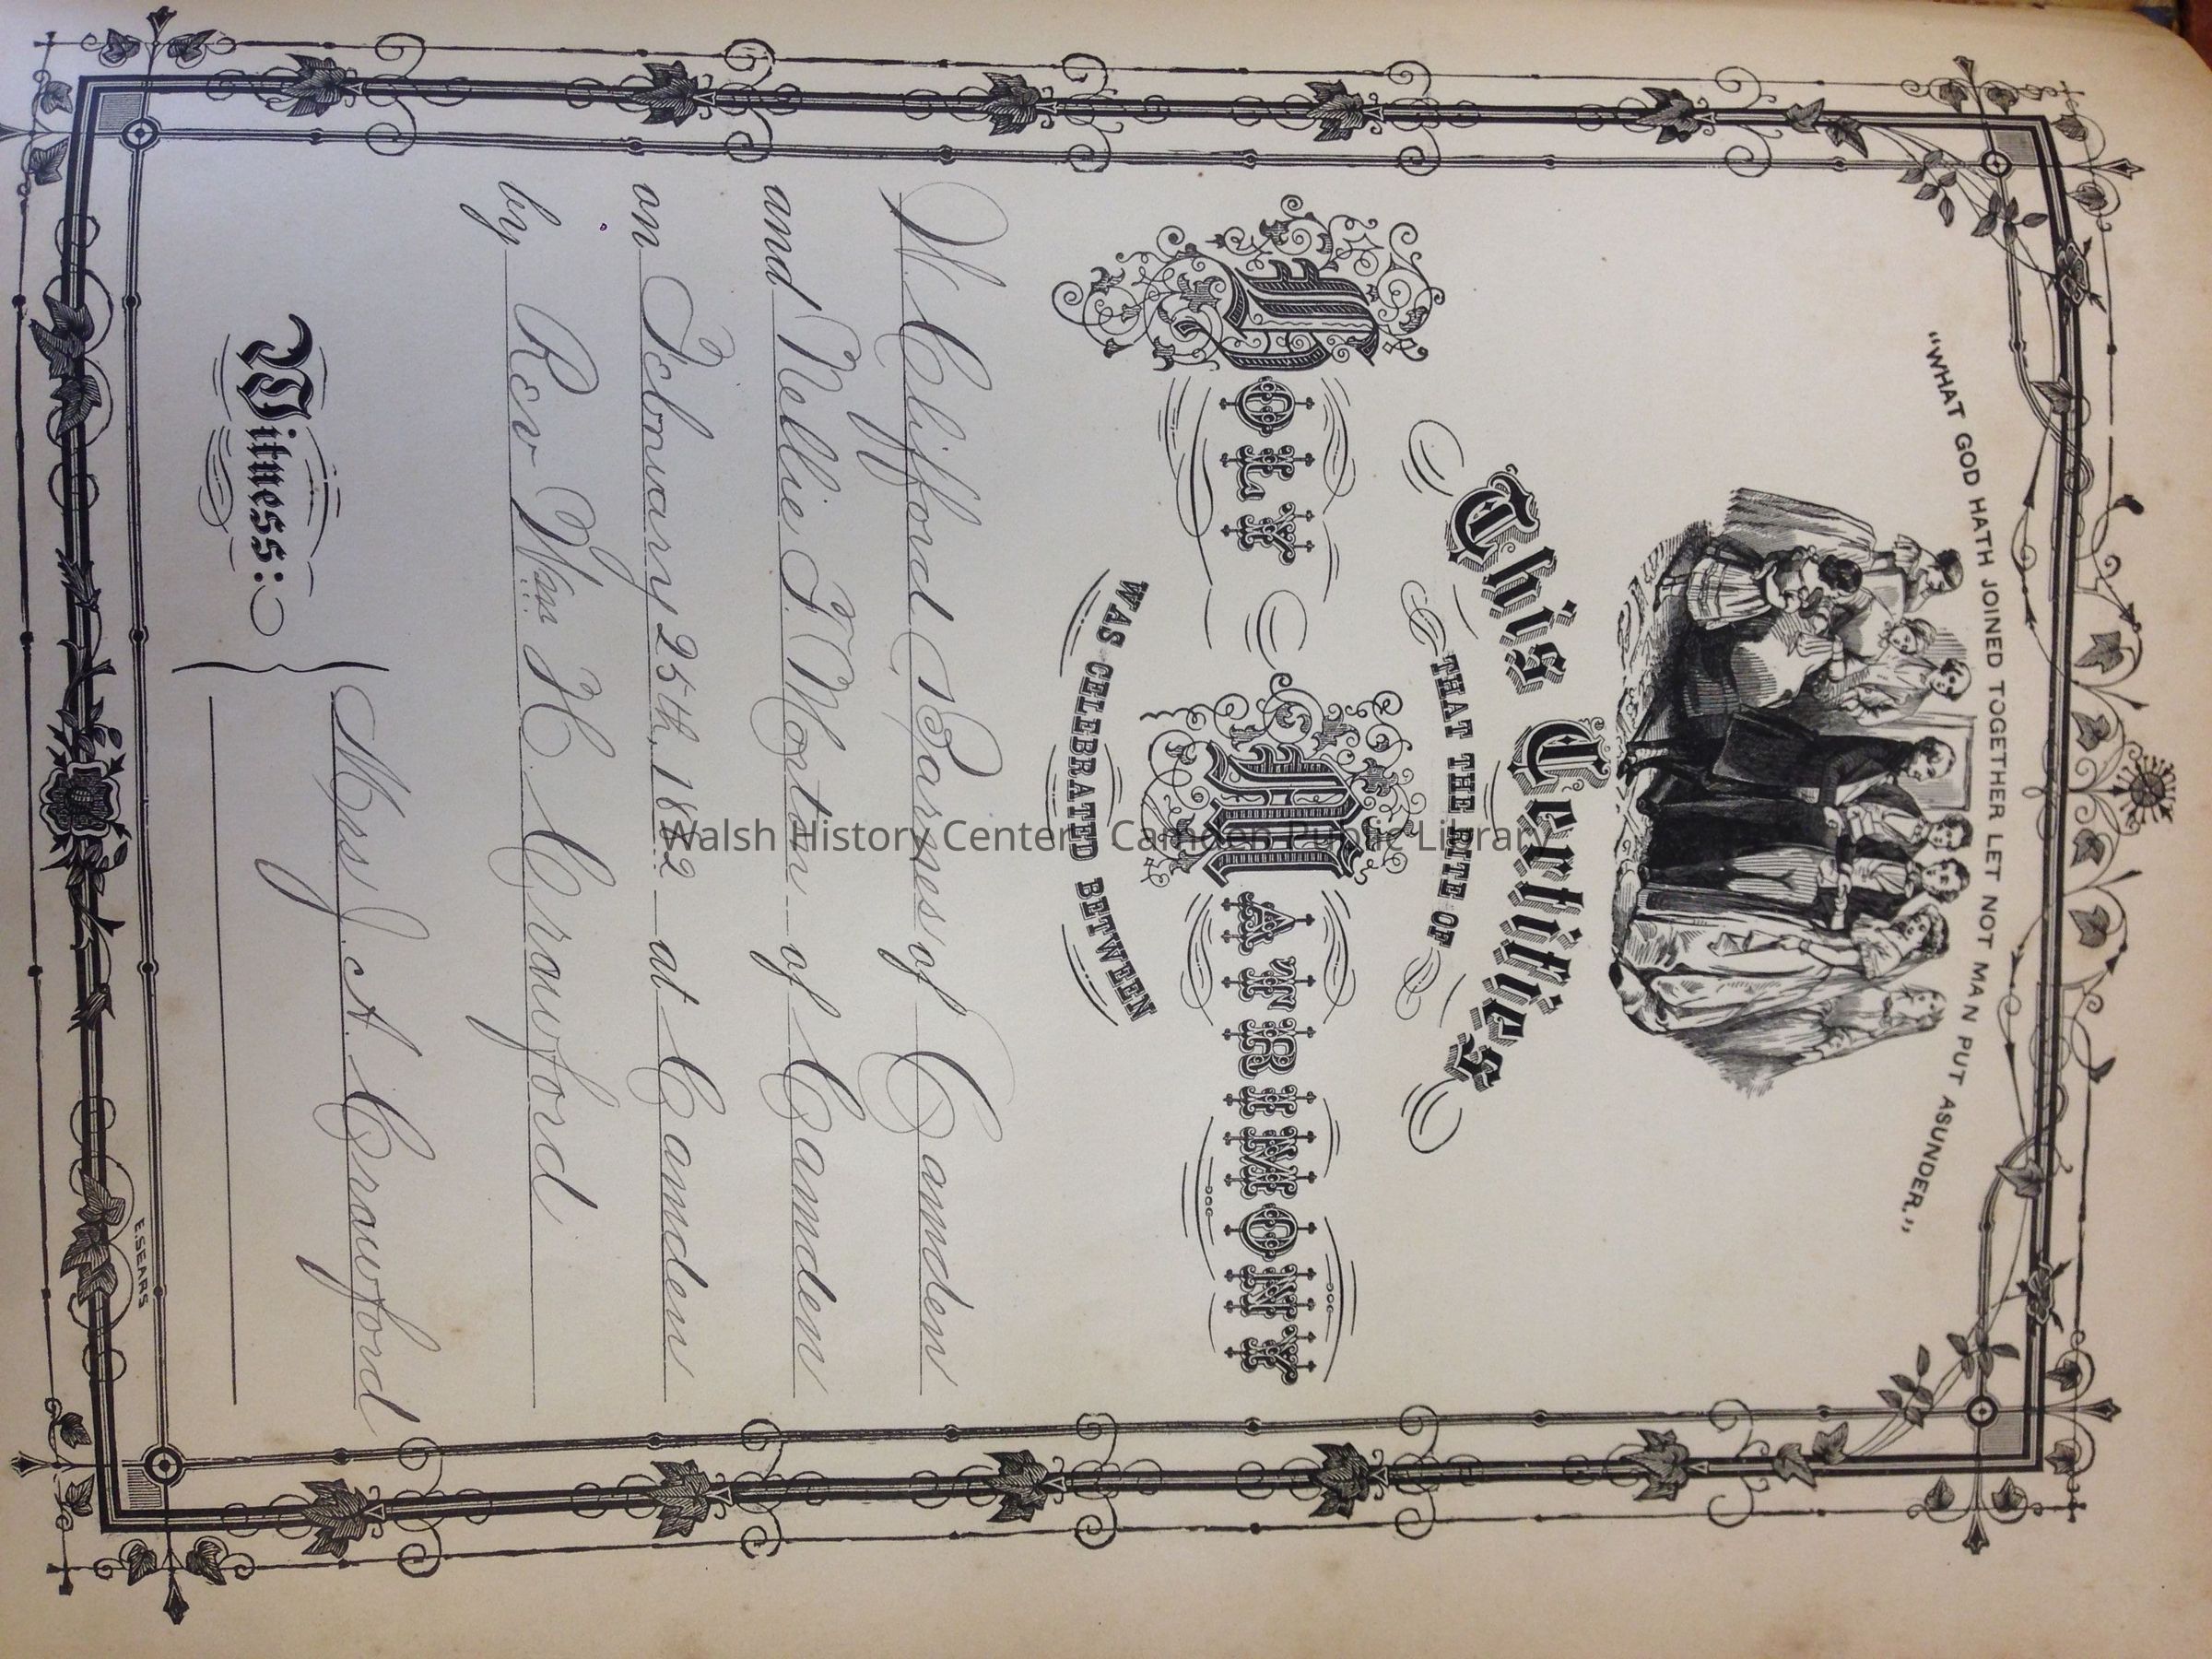 "WHAT GOD HATH JOINED TOGETHER LET NOT MAN PUT ASUNDER."
This Certifies
THAT THE RITE OF
HOLY MATRIMONY
WAS CELEBRATED BETWEEN
W. Clifford Barnes of Camden
and Nellie F. Martin of Camden
on February 25th, 1882 at Camden
by Rev Wm. H. Crawford
Witness: Mrs J. A. Crawford
E. SEARS
Walsh History Center - Camden Public Library